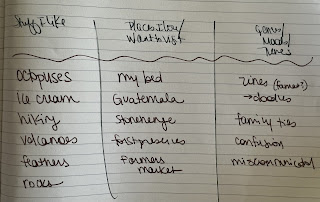 Stuff I like
Places I love/
Want to visit
Genres/
Moods/
Tones
octopuses my bed zines (famous?)
ice cream Guatemala → doodles
hiking Stonehenge family ties
volcanoes forest preserves confusion
feathers Farmers market miscommunication
rocks